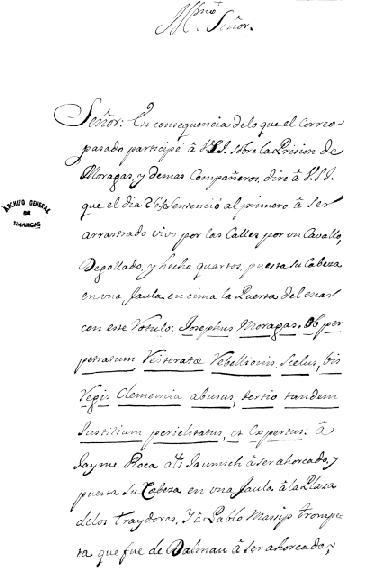 Illmo
Señor.
Señor: En consequencia de lo que el Correo
pasado participè â V.S.I. sobre la Prision de
Moragas, y demas Compañeros, dire â V.S.I.
que el dia 26 se sentenciò al primero â ser
arrastrado vivo por las Calles por un Cavallo,
Degollado, y hecho quartos, puesta su Cabeza
en una Jaula en cima la Puerta del mar
con este Rotulo: Josephus Moragas, Ob per
petratum Reiteratæ Rebellionis Scelus, bis
Regis Clementia abusus, tertio tandem
Justitiam periclitatus, est Expertus: â
Jayme Roca ats Jaumich â ser ahorcado, y
puesta su Cabeza en una Jaula â la Plaza
de los Traydores, Y â Pablo Marsip trompe
ta que fue de Dalmau â ser ahorcado;
ARCHIVO GENERAL
DE
SIMANCAS